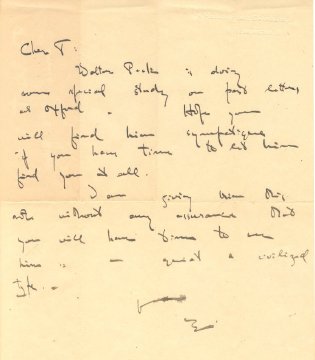 Cher T:
Dalton Peck is doing
some special study on past letters
at Oxford. Hope you
will find him sympatique
if you have time to let him
find you at all.
I am giving him this
note without any assurance that
you will have time to see
him — quiet & civilized
type.
E.